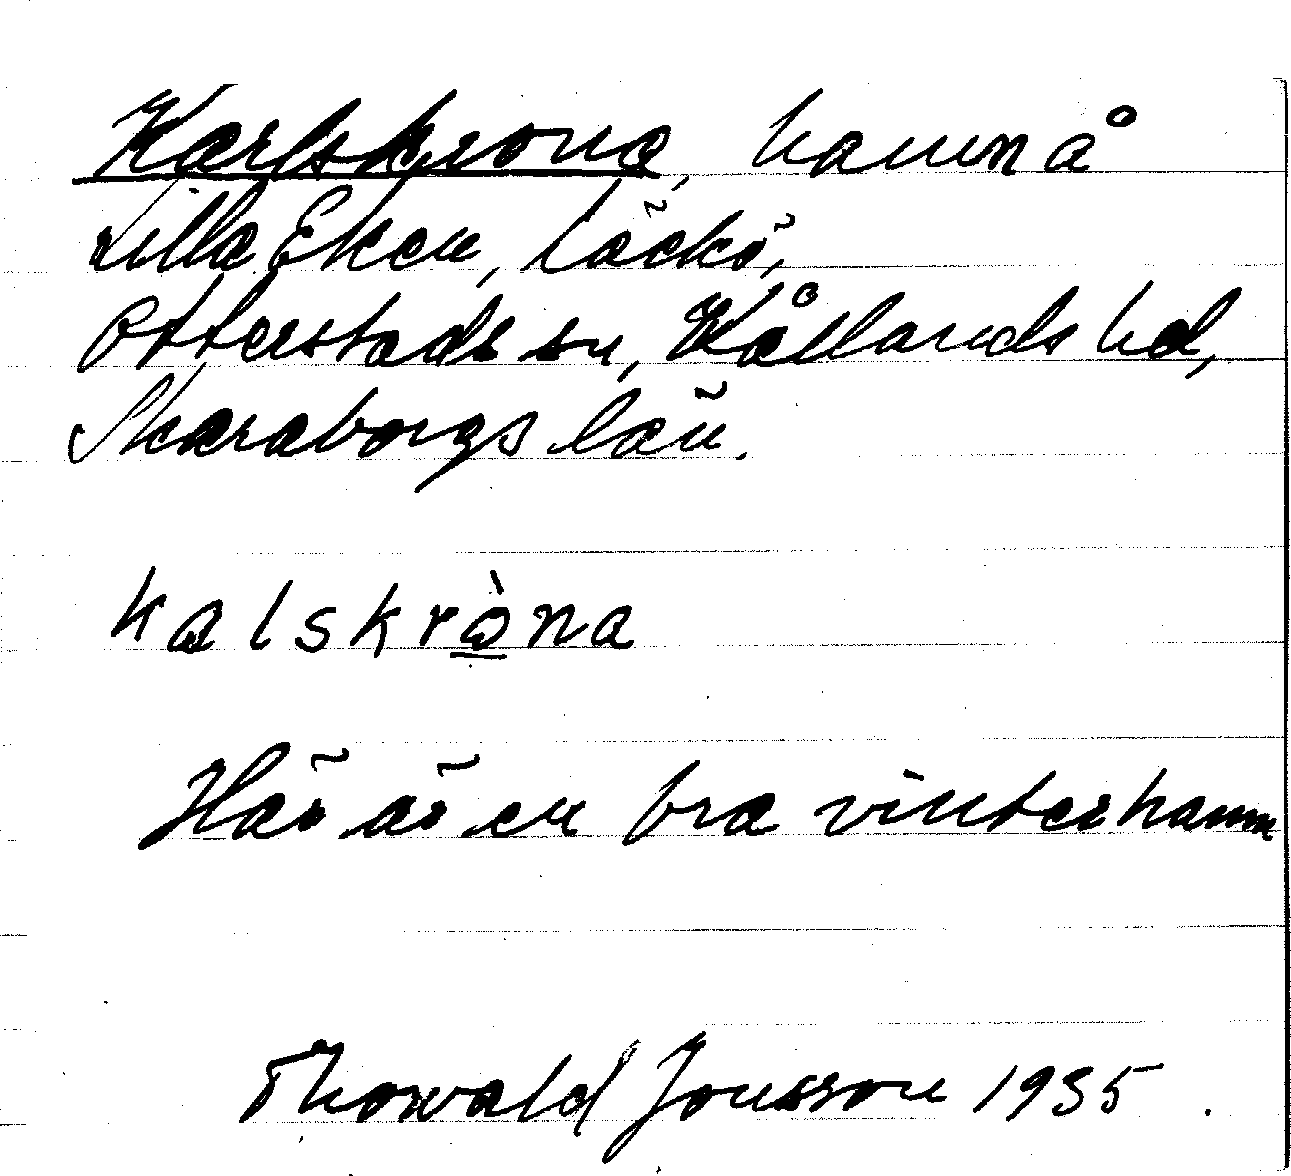 Karlskrona, hamn å
Lilla Eken, Läckö,
Otterstads sn, Kållands hd,
Skaraborgs län.
kalskròna
Här är en bra vinterhamn
Thowald Jonsson 1935.